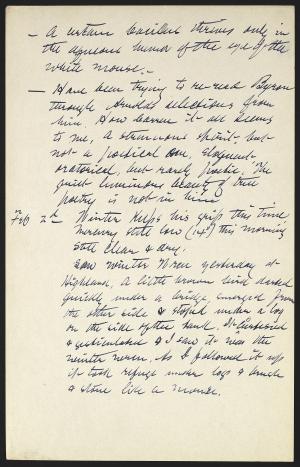 — A certain bacillus thrives only in
the aqueous humor of the eye of the
white mouse. —
— Have been trying to re-read Byron
through Arnolds selections from
him. How barren it all seems
to me, a strenuous spirit, but
not a poetical one, eloquent
oratorical, but rarely poetic. The
quiet luminous beauty of true
poetry is not in him.
Feb 2d Winter keeps his grip this time,
Mercury still low (14°) this morning
still clear & dry.
Saw winter wren yesterday at
Highland, A little brown bird darted
quickly under a bridge, emerged from
the other side & stopped under a log
on the side of the bank. It curtsied
& gesticulated & I saw it was the
winter wren. As I followed it up
it took refuge under logs & brush
& stone like a mouse.